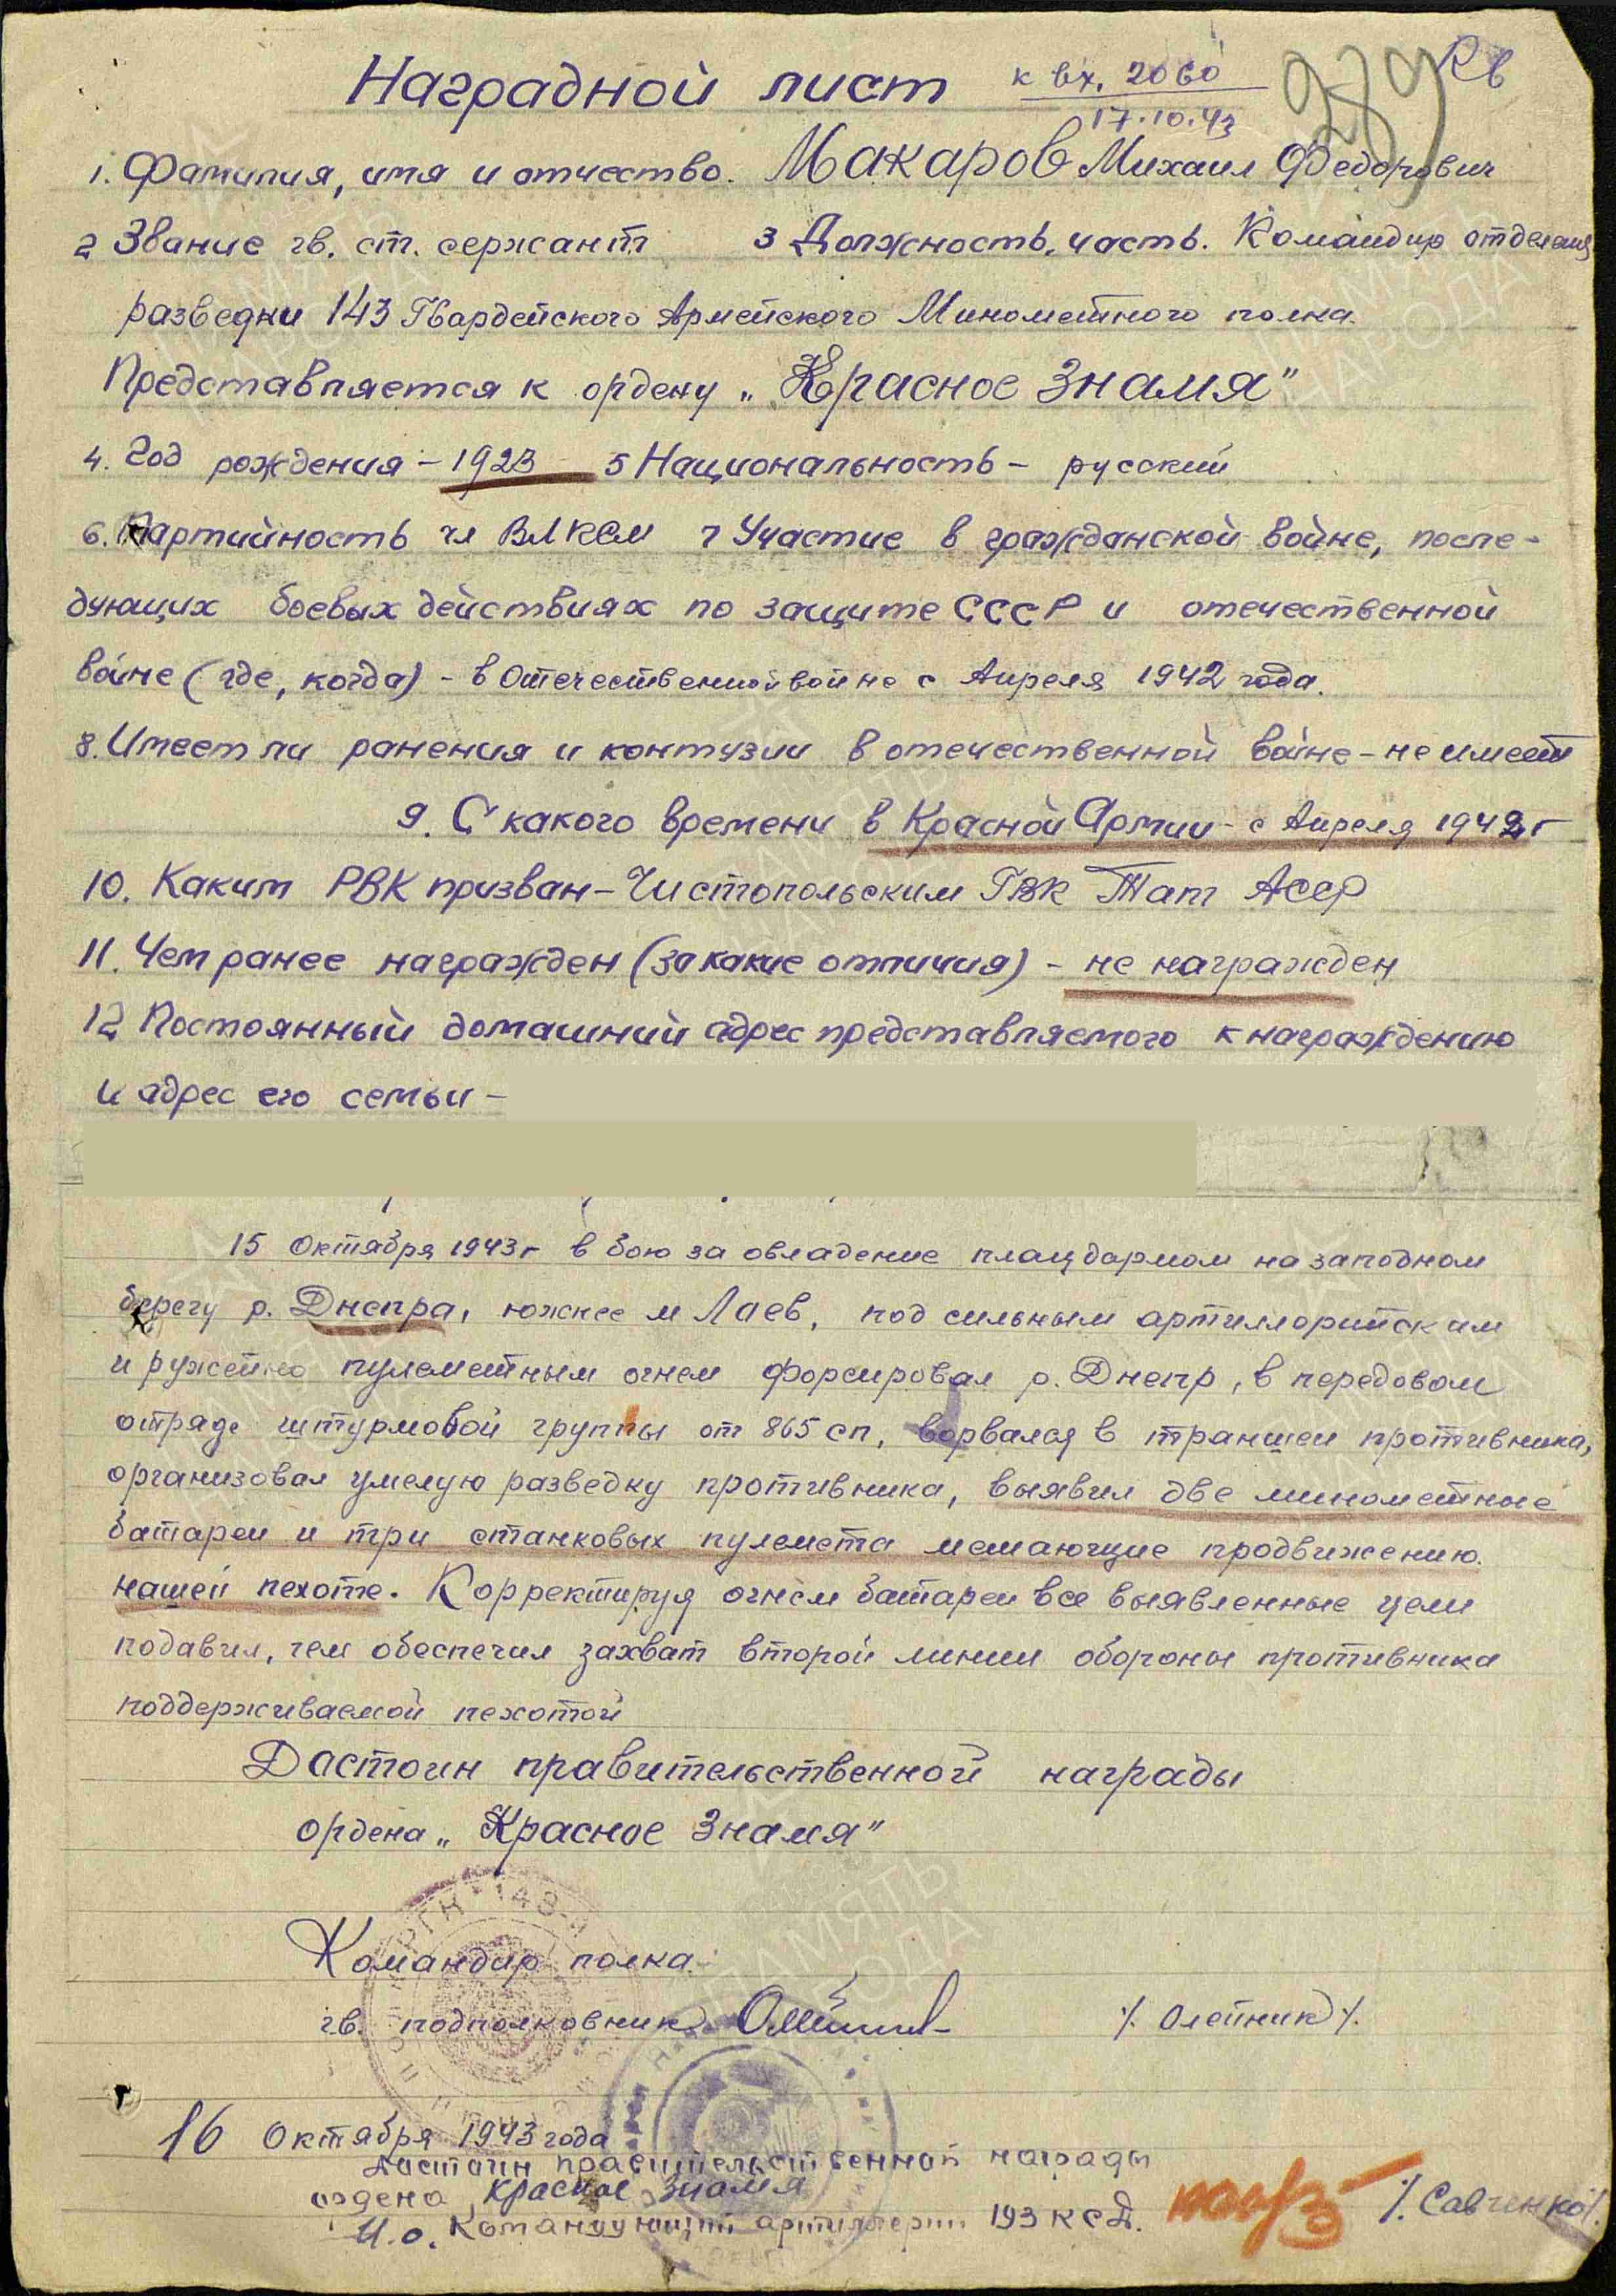 Наградной лист к вх. 2060
17.10.43
1. Фамилия, имя и отчество. Макаров Михаил Федорович
2 Звание гв. ст. сержант 3 Должность, часть. Командир отделения
разведки 143 Гвардейского Армейского Минометного полка.
Представляется к ордену „Красное Знамя"
4. Год рождения - 1923 5 Национальность - русский
6. Партийность чл ВЛКСМ 7 Участие в гражданской войне, после-
дующих боевых действиях по защите СССР и отечественной
войне (где, когда) - в Отечественной войне с Апреля 1942 года.
8. Имеет ли ранения и контузии в отечественной войне - не имеет
9. С какого времени в Красной Армии - с Апреля 1942 г
10. Каким РВК призван - Чистопольским ГВК Тат АССР
11. Чем ранее награжден (за какие отличия) - не награжден
12 Постоянный домашний адрес представляемого к награждению
и адрес его семьи -
15 Октября 1943 г в бою за овладение плацдармом на западном
берегу р. Днепра, южнее м Лаев, под сильным артиллерийским
и ружейно пулеметным огнем форсировал р. Днепр, в передовом
отряде штурмовой группы от 865 сп, ворвался в траншеи противника,
организовал умелую разведку противника, выявил две минометные
батареи и три станковых пулемета мешающие продвижению
нашей пехоте. Корректируя огнем батареи все выявленные цели
подавил, чем обеспечил захват второй линии обороны противника
поддерживаемой пехотой
Достоин правительственной награды
ордена „Красное Знамя"
Командир полка
гв. подполковник /. Олейник /.
16 Октября 1943 года
Достоин правительственной награды
ордена Красное Знамя
И.о. Командующий артиллерии 193 КСД. /. Савченко /.